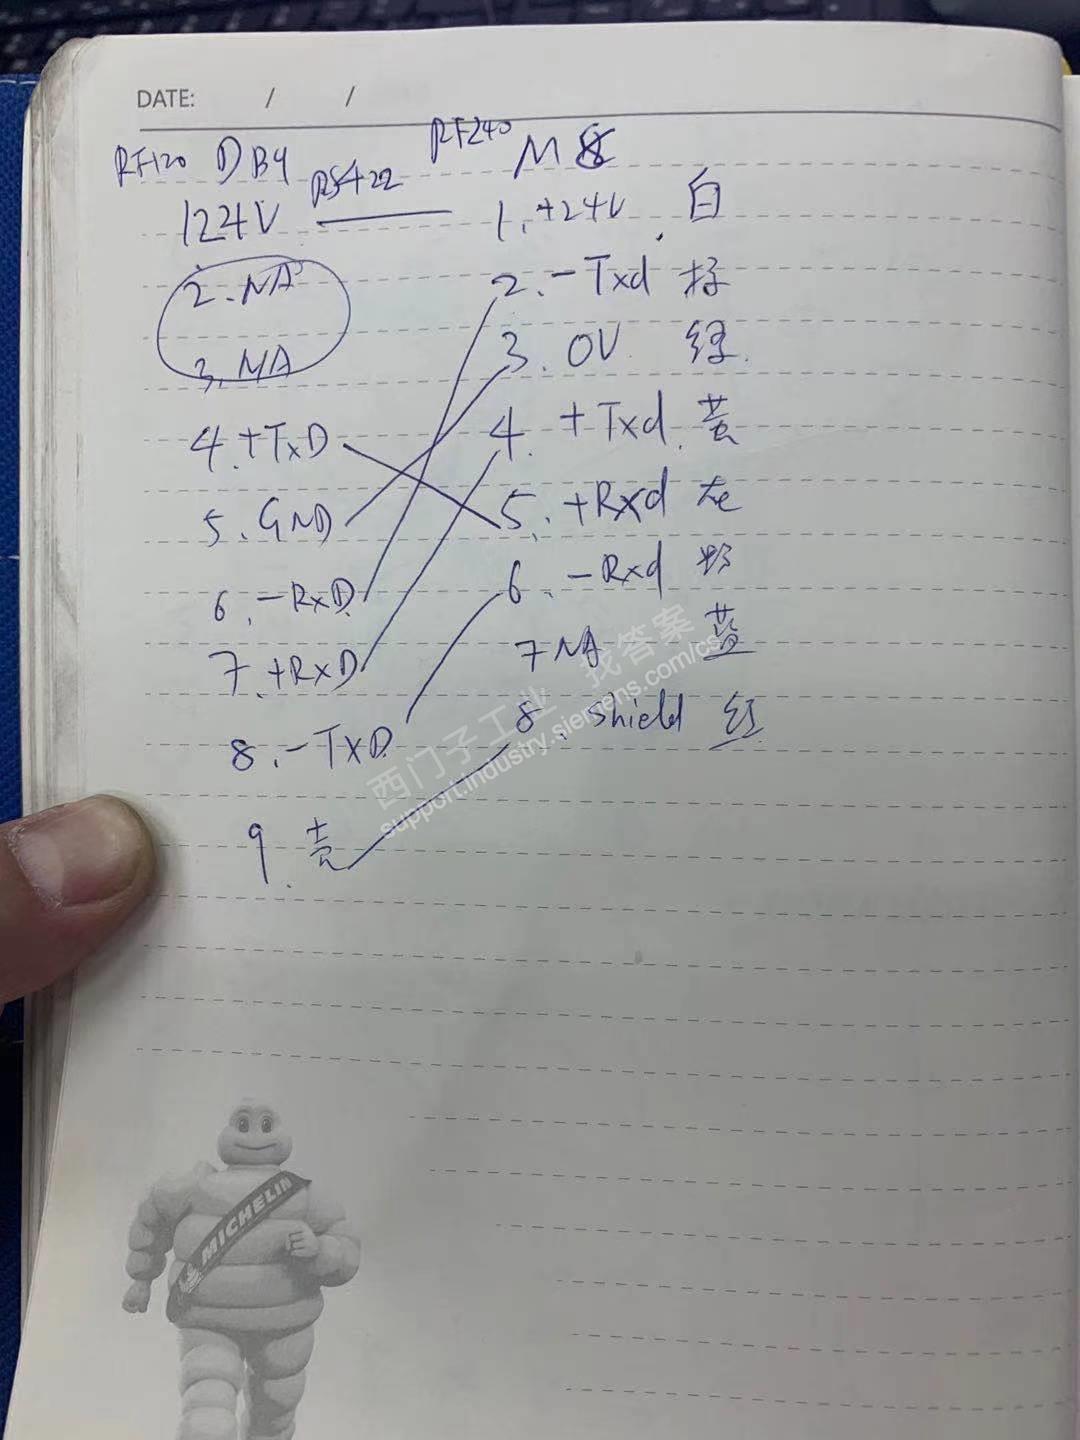 DATE: / /
RF120 DB9 RS422 RF240 M8
1 24V 1. +24V 白
2. NA 2. -Txd 棕
3. NA 3. 0V 绿
4. +TxD 4. +Txd 黄
5. GND 5. +Rxd 灰
6. -RxD 6. -Rxd 粉
7. +RxD 7 NA 蓝
8. -TxD 8. shield 红
9. 壳
西门子工业 找答案
support.industry.siemens.com/cs
MICHELIN